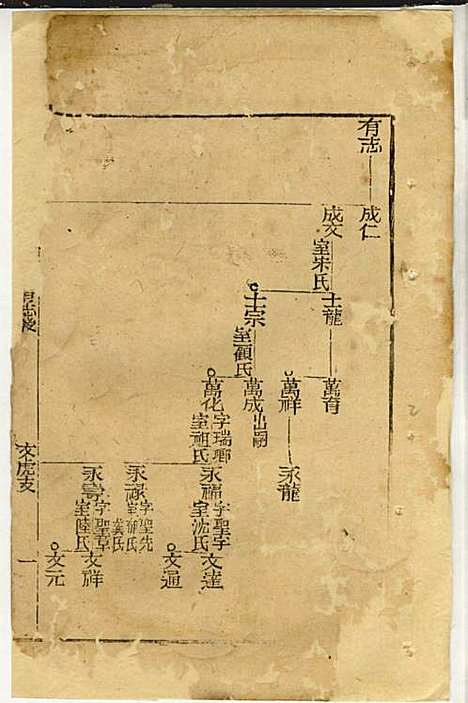 有志
成仁
成文 室宋氏
士龍
士宗 室顧氏
萬育
萬祥
萬成 出嗣
萬化 字瑞卿 室祖氏
永龍
永福 字聖宇 室沈氏
永祿 字聖先 龔氏
永壽 字聖章 室陸氏
文達
文通
文祥
文元
文虎支
一